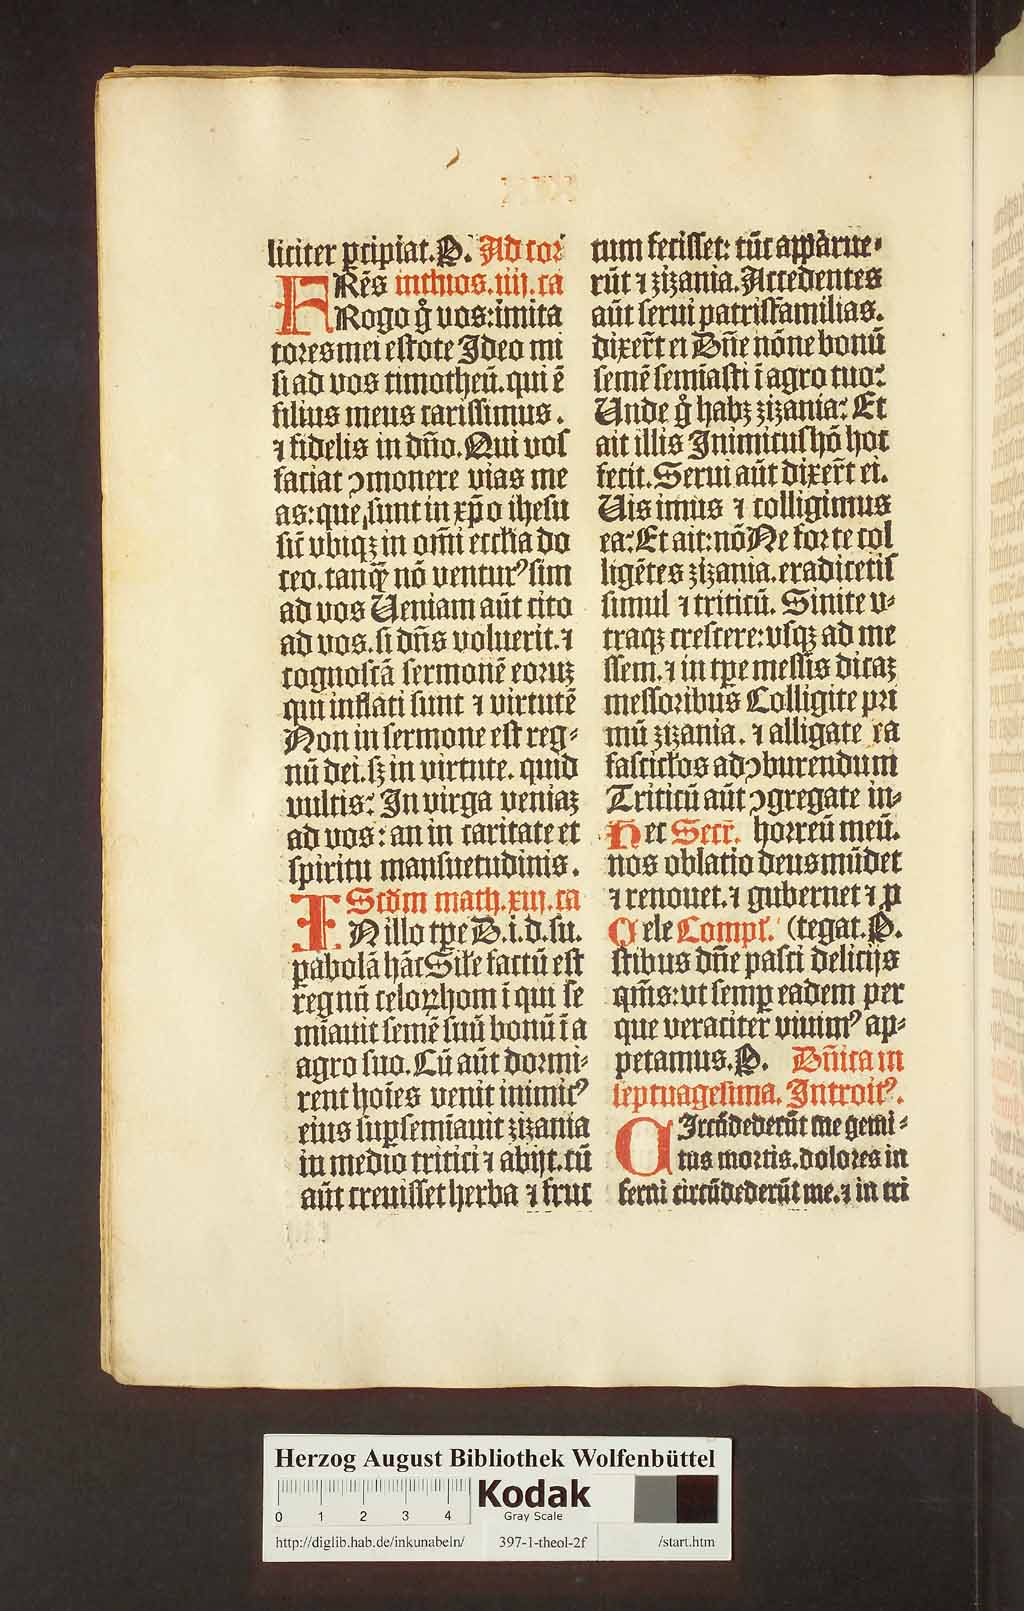 liciter ꝑcipiat. P. Ad cor
FRēs inthios. iiij. ca
Rogo g̊ vos: imita
tores mei estote Ideo mi
si ad vos timotheū. qui ē
filius meus carissimus.
⁊ fidelis in dn̄o. Qui vos
faciat ꝯmonere vias me
as: que sunt in xp̄o ihesu
sic̄ vbiqꝫ in om̄i eccl̄ia do
ceo. tanq̄ nō venturꝰ sim
ad vos Veniam aūt cito
ad vos. si dn̄s voluerit. ⁊
cognoscā sermonē eoruꝫ
qui inflati sunt ⁊ virtutē
Non in sermone est reg⸗
nū dei. sꝫ in virtute. quid
vultis? In virga veniaꝫ
ad vos: an in caritate et
spiritu mansuetudinis.
Scd̄m math. xiij. ca
IN illo tꝑe D. i. d. su.
ꝑabolā hāc Sil̄e factū est
regnū celoꝝ hom̄i qui se
mīauit semē suū bonū ī a
agro suo. Cū aūt dormi⸗
rent hoīes venit inimicꝰ
eius suꝑsemīauit zizania
in medio tritici ⁊ abijt. cū
aūt creuisset herba ⁊ fruc
tum fecisset: tūc apparue⸗
rūt ⁊ zizania. Accedentes
aūt serui patrisfamilias.
dixer̄t ei Dn̄e nōne bonū
semē semīasti ī agro tuo?
Unde g̊ habꝫ zizania? Et
ait illis Inimicus hō hoc
fecit. Serui aūt dixer̄t ei.
Uis imus ⁊ colligimus
ea? Et ait: nō Ne forte col
ligētes zizania. eradicetis
simul ⁊ triticū. Sinite v⸗
traqꝫ crescere: vsqꝫ ad me
ssem. ⁊ in tꝑe messis dicaꝫ
messoribus Colligite pri
mū zizania. ⁊ alligate ea
fascicl̄os ad ꝯburendum
Triticū aūt ꝯgregate in⸗
Hec Secr̄. horreū meū.
nos oblatio deus mūdet
⁊ renouet. ⁊ gubernet ⁊ ꝓ
Cele Compl̄. (tegat. P.
stibus dn̄e pasti delicijs
qm̄s: vt semꝑ eadem per
que veraciter viuimꝰ ap⸗
petamus. P. Dn̄ica in
septuagesima. Introitꝰ.
CIrcūdederūt me gemi⸗
tus mortis. dolores in
ferni circūdederūt me. ⁊ in tri
Herzog August Bibliothek Wolfenbüttel
0 1 2 3 4
Kodak
Gray Scale
http://diglib.hab.de/inkunabeln/ 397-1-theol-2f /start.htm